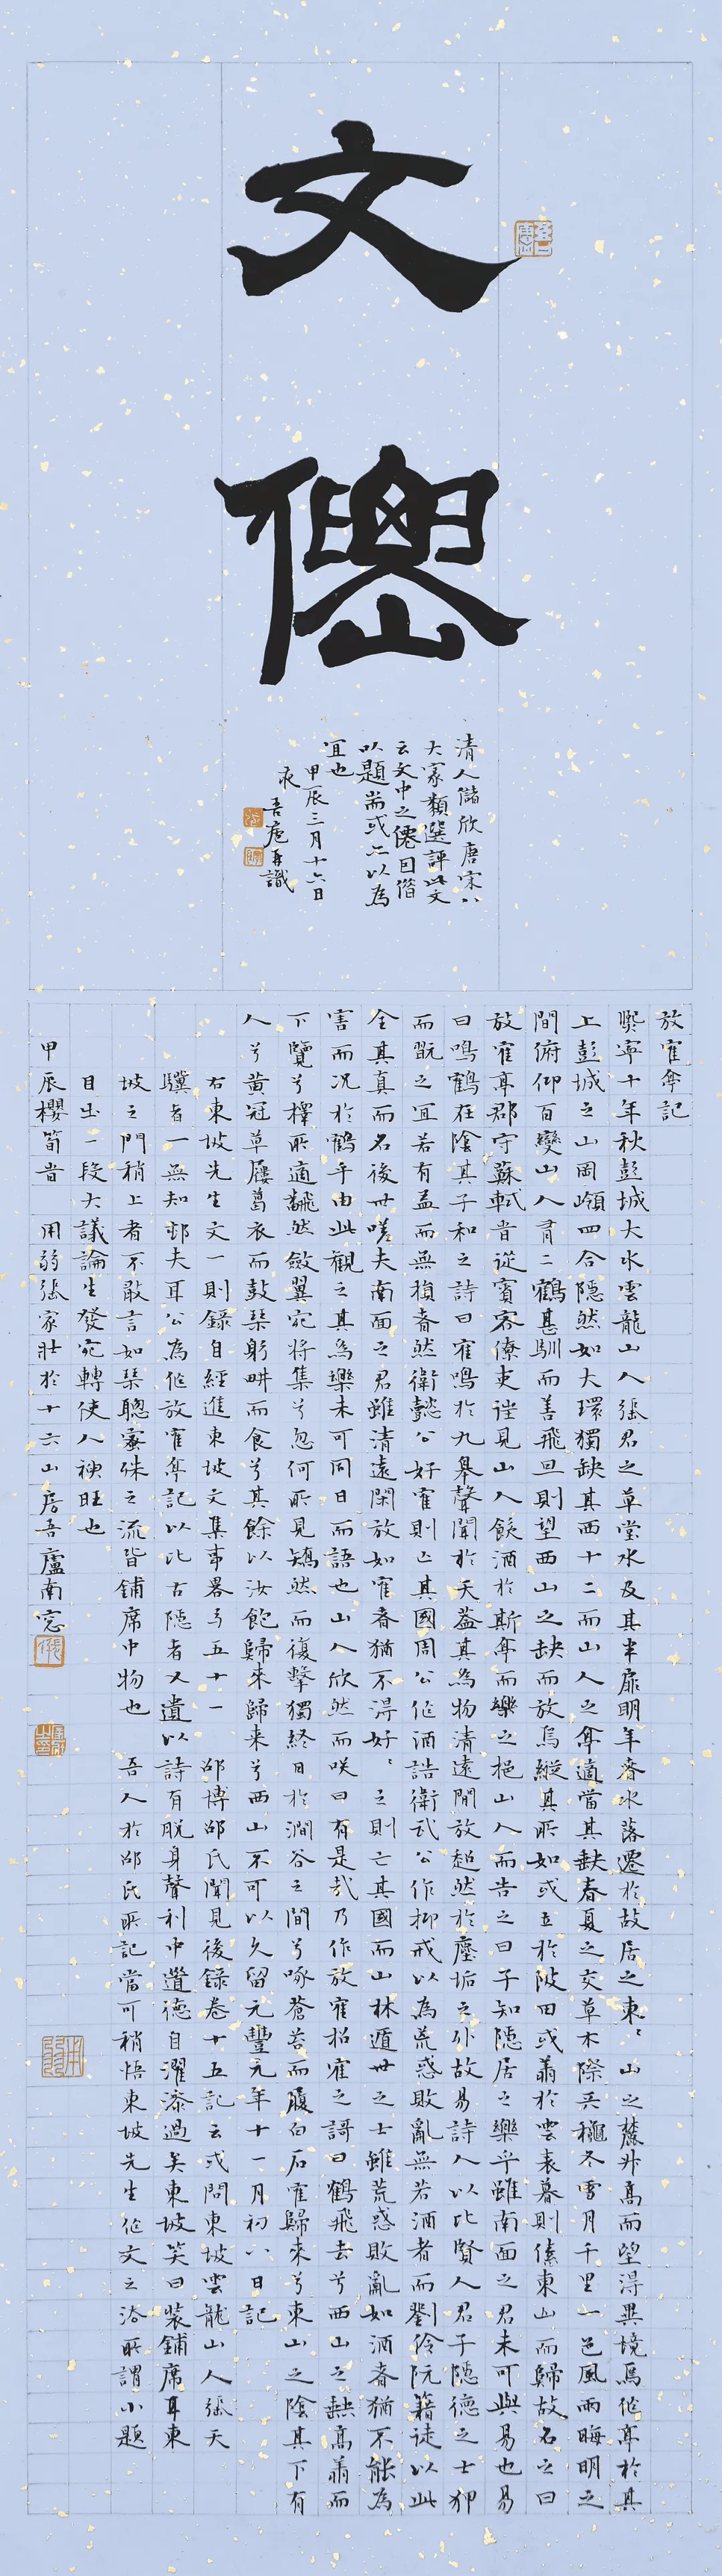 文
僊
清人儲欣唐宋八
大家類選評此文
云文中之僊因借
以題耑或亦以為
宜也
甲辰三月十六日
夜
吾廬再識
放寉亭記
熙寧十年秋彭城大水雲龍山人張君之草堂水及其半扉明年春水落遷於故居之東〻山之麓升髙而望得異境焉作亭於其
上彭城之山岡嶺四合隱然如大環獨缺其西十二而山人之亭適當其缺春夏之交草木際天秋冬雪月千里一色風雨晦明之
間俯仰百變山人有二鶴甚馴而善飛旦則望西山之缺而放焉縱其所如或立於陂田或翥於雲表暮則傃東山而歸故名之曰
放寉亭郡守蘇軾昔從賓客僚吏往見山人飲酒於斯亭而樂之挹山人而告之曰子知隱居之樂乎雖南面之君未可與易也易
曰鳴鶴在陰其子和之詩曰寉鳴於九皋聲聞於天葢其為物清遠閒放超然於塵垢之外故易詩人以比賢人君子隱德之士狎
而翫之宜若有益而無損者然衛懿公好寉則亡其國周公作酒誥衛武公作抑戒以為荒惑敗亂無若酒者而劉伶阮籍徒以此
全其真而名後世嗟夫南面之君雖清遠閑放如寉者猶不得好〻之則亡其國而山林遁世之士雖荒惑敗亂如酒者猶不能為
害而況於鶴乎由此觀之其為樂未可同日而語也山人欣然而咲曰有是哉乃作放寉招寉之謌曰鶴飛去兮西山之缺髙翥而
下覽兮擇所適飜然斂翼宛將集兮忽何所見矯然而復擊獨終日於澗谷之間兮啄蒼苔而履白石寉歸來兮東山之陰其下有
人兮黃冠草屨葛衣而鼓琴躬畊而食兮其餘以汝飽歸來歸来兮西山不可以久留元豐元年十一月初八日記
右東坡先生文一則録自經進東坡文集事畧号五十一 邵博邵氏聞見後録卷十五記云或問東坡雲龍山人張天
驥者一無知邨夫耳公為作放寉亭記以比古隱者又遺以詩有脱身聲利中道德自濯澡過矣東坡笑曰裝鋪席耳東
坡之門稍上者不敢言如琴聰蜜殊之流皆鋪席中物也 吾人於邵氏所記當可稍悟東坡先生作文之法所謂小題
目出一段大議論生發宛轉使人神旺也
甲辰櫻筍昔 用弱張家壯於十六山房吾廬南窓